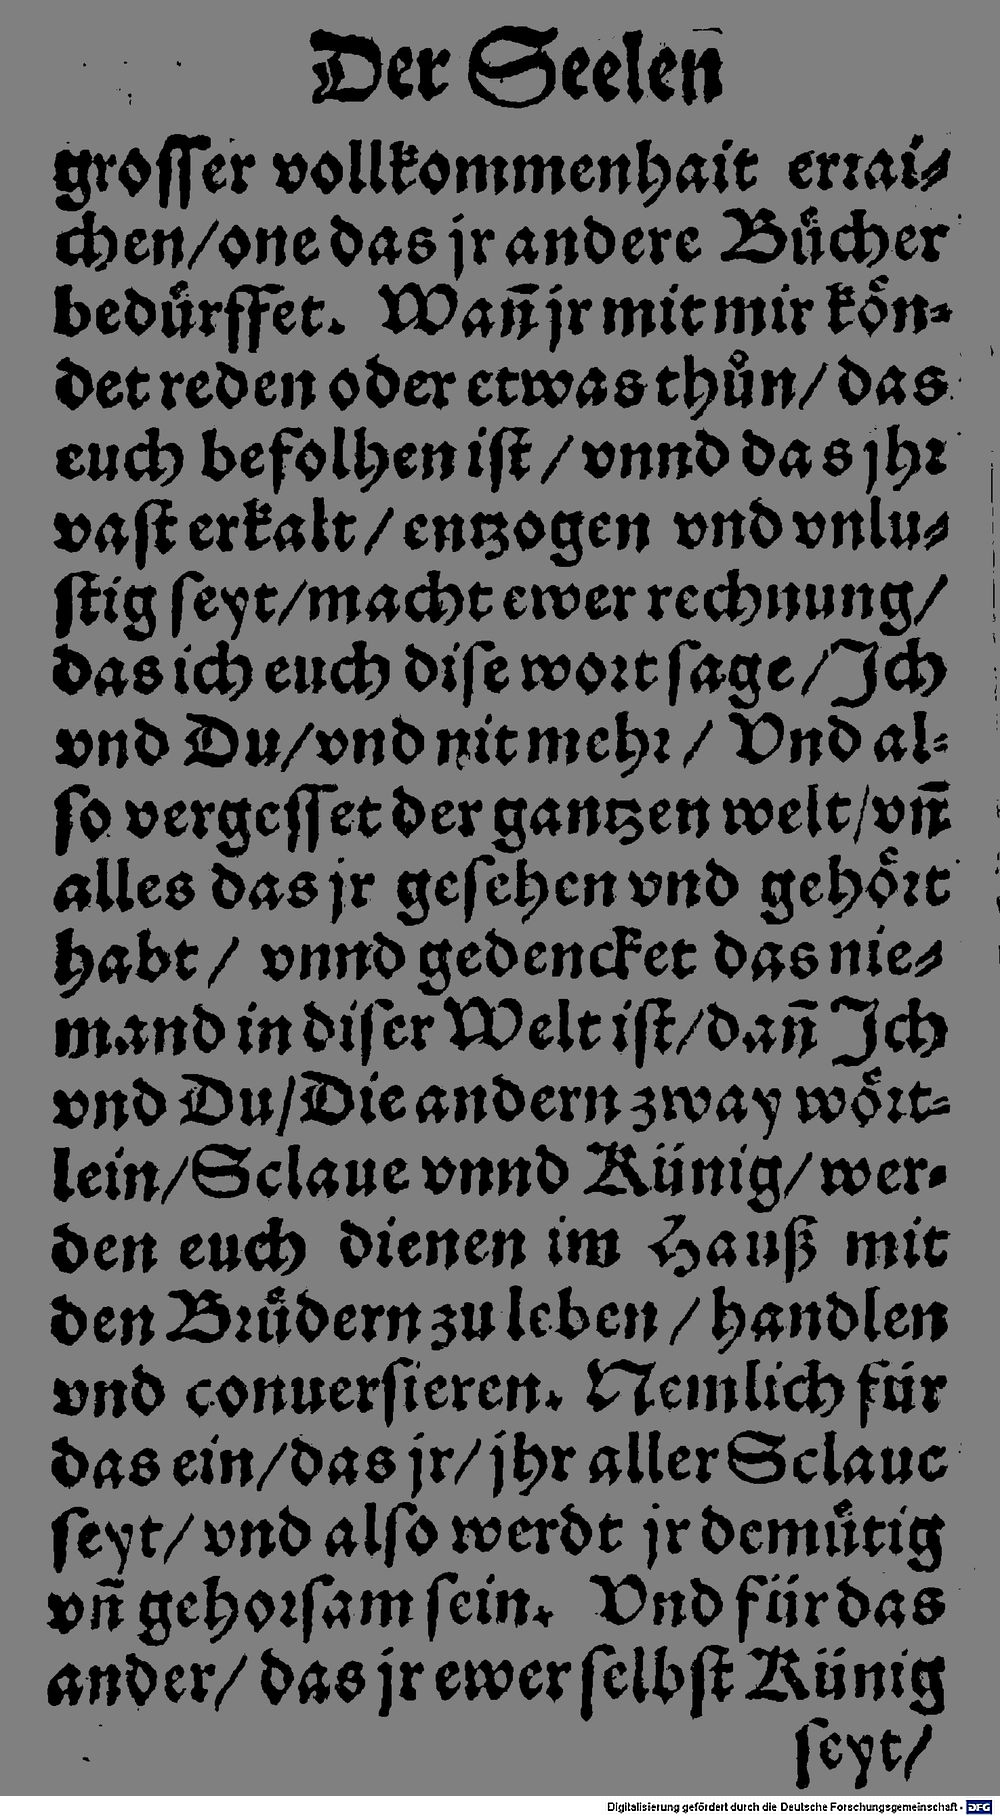 Der Seelen̄
groſſer vollkommenhait erꝛai⸗
chen/one das jr andere Buͤcher
beduͤrffet. Wan̄ jr mit mir koͤn⸗
det reden oder etwas thůn/das
euch befolhen iſt/vnnd das jhꝛ
vaſt erkalt/entzogen vnd vnlu⸗
ſtig ſeyt/macht ewer rechnung/
das ich euch diſe woꝛt ſage/Jch
vnd Du/vnd nit mehꝛ/Vnd al⸗
ſo vergeſſet der gantzen welt/vn̄
alles das jr geſehen vnd gehoͤꝛt
habt/vnnd gedencket das nie⸗
mand in diſer Welt iſt/dan̄ Jch
vnd Du/Die andern zway woͤꝛt⸗
lein/Sclaue vnnd Künig/wer⸗
den euch dienen im Hauß mit
den Bꝛuͤdern zu leben/handlen
vnd conuerſieren. Nemlich für
das ein/das jr/jhr aller Sclaue
ſeyt/vnd alſo werdt jr demuͤtig
vn̄ gehoꝛſam ſein. Vnd für das
ander/das jr ewer ſelbſt Künig
ſeyt/
Digitalisierung gefördert durch die Deutsche Forschungsgemeinschaft - DFG